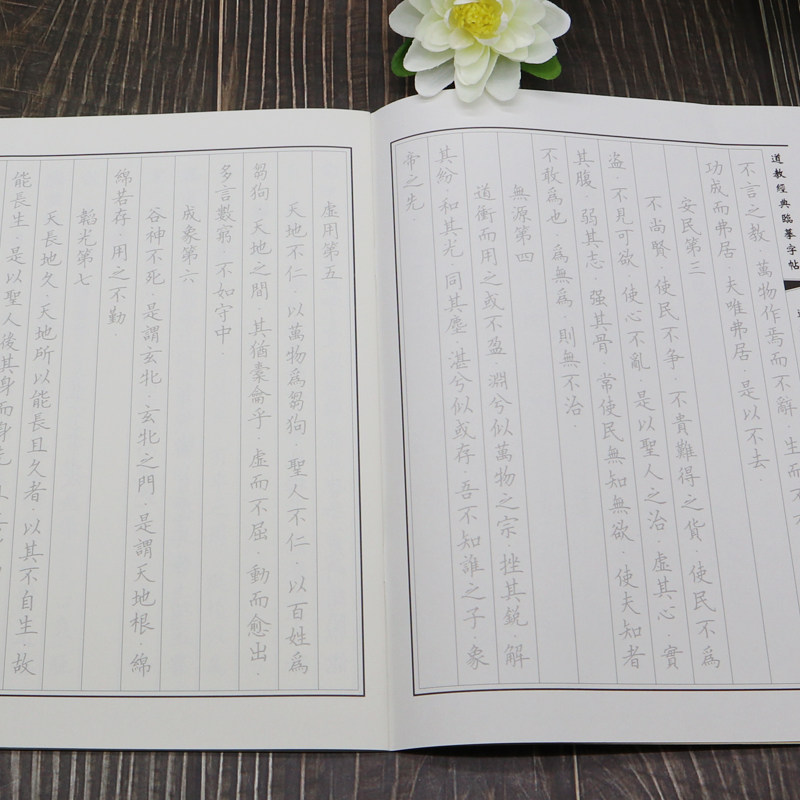 道教經典臨摹字帖
不言之教．萬物作焉而不辭．生而不
功成而弗居．夫唯弗居．是以不去．
安民第三
不尚賢．使民不争．不貴難得之貨．使民不爲
盜．不見可欲．使心不亂．是以聖人之治．虛其心．實
其腹．弱其志．强其骨．常使民無知無欲．使夫知者
不敢爲也．爲無爲．則無不治．
無源第四
道衝而用之或不盈．淵兮似萬物之宗．挫其銳．解
其紛．和其光．同其塵．湛兮似或存．吾不知誰之子．象
帝之先．
虛用第五
天地不仁．以萬物爲芻狗．聖人不仁．以百姓爲
芻狗．天地之間．其猶橐龠乎．虛而不屈．動而愈出．
多言數窮．不如守中．
成象第六
谷神不死．是謂玄牝．玄牝之門．是謂天地根．綿
綿若存．用之不勤．
韜光第七
天長地久．天地所以能長且久者．以其不自生．故
能長生．是以聖人後其身而身先